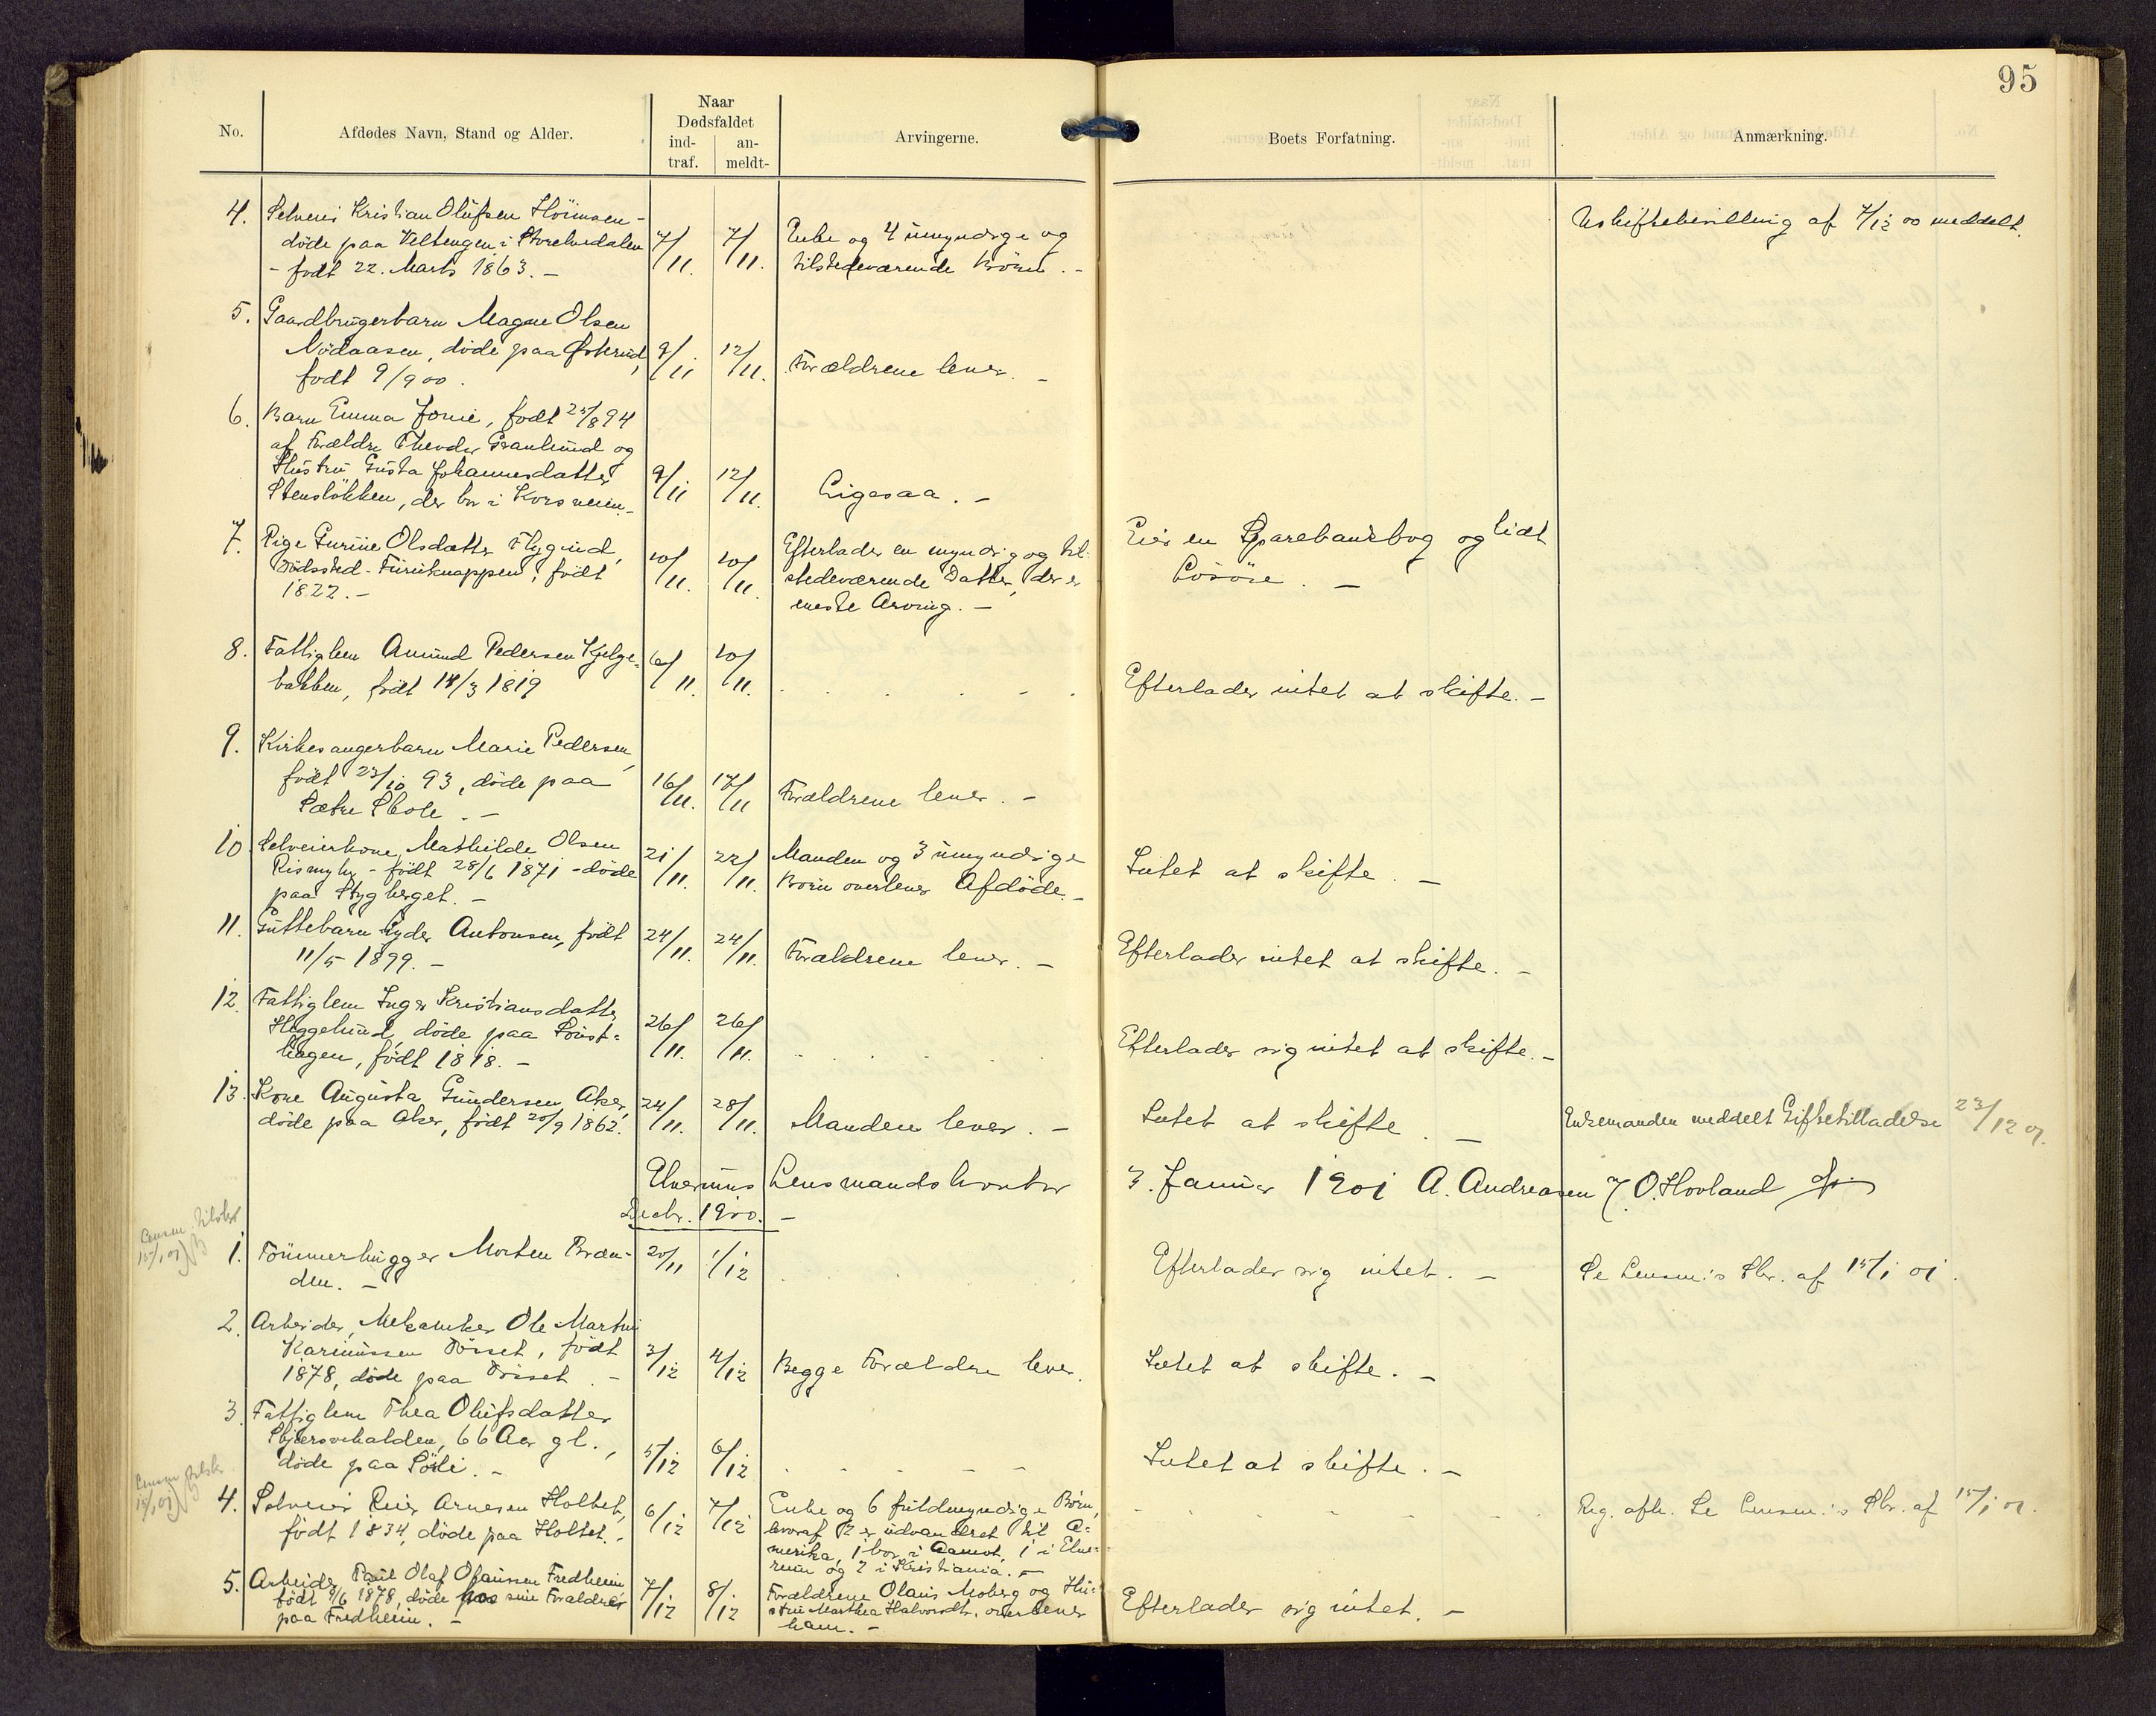 95
No.
Afdødes Navn, Stand og Alder.
Naar
Dødsfaldet
ind-
traf.
an-
meldt-
Arvingerne.
Boets Forfatning.
Anmærkning.
4. Selveier Kristian Olufsen
døde paa Veltengen i
- født 22. Marts 1863. -
7/11. 7/11.
Enke og 4 umyndige og
tilstedeværende Børn. -
Uskiftebevilling af 7/12 00 meddelt.
5. Gaardbrugerbarn Magne Olsen
Nödaasen, døde paa Østerud,
født 9/9 00.
9/11 12/11.
Forældrene lever. -
6. Barn Emma Jonie, født 25/8 94
af Forældre Theodor Granlund og
Hustru Gusta Johannesdatter
Stenslökken, der bor i
9/11 12/11.
Ligesaa. -
7. Pige Gurine Olsdatter Flygind,
Dødssted - Furuknappen, født
1822. -
10/11. 10/11.
Efterlader en myndig og til-
stedeværende Datter, der er
eneste Arving. -
Eier en Sparebankbog og lidt
Løsöre. -
8. Fattiglem Amund Pedersen
bakken, født 14/3 1819
6/11. 10/11.
Efterlader intet at skifte. -
9. Kirkesangerbarn Marie Pedersen,
født 23/10 93, døde paa
Sætre Skole. -
16/11. 17/11
Forældrene lever. -
10. Selveierkone Mathilde Olsen
Rismyhr - født 28/6 1871 - døde
paa Stygberget. -
21/11. 22/11.
Manden og 3 umyndige
Børn overlever Afdöde. -
Intet at skifte. -
11. Guttebarn Eyder Antonsen, født
11/5 1899. -
24/11. 24/11.
Forældrene lever. -
Efterlader intet at skifte. -
12. Fattiglem Inger Kristiansdatter
Heggelund, døde paa
hagen, født 1818. -
26/11. 26/11.
Efterlader sig intet at skifte. -
13. Kone Augusta Gundersen Aker,
døde paa Aker, født 20/9 1862.
24/11. 28/11.
Manden lever. -
Intet at skifte. -
Enkemanden meddelt Giftetilladelse 23/12 01.
Elverums Lensmandskontor 3. Januar 1901 A. Andreasen / O. Hovland
Decbr. 1900. -
Lensm. tilskr.
15/1 01
1. Tömmerhugger Morten Bræn-
den. -
20/11 1/12
Efterlader sig intet. -
Se Lensm:s Skr. af 15/1 01.
2. Arbeider, Mekaniker Ole Martin
Karinussen Tösset, født
1878, døde paa Tösset. -
3/12 4/12
Begge Forældre lever.
Intet at skifte. -
3. Fattiglem Thea Olufsdatter
66 Aar gl.,
døde paa Sörli. -
5/12 6/12
Intet at skifte. -
Lensm tilskr.
15/1 01
4. Selveier Peier Arnesen Holtet,
født 1834, døde paa Holtet. -
6/12 7/12
Enke og 6 fuldmyndige Börn,
hvoraf 2 er udvandret til A-
merika, 1 bor i Aamot, 1 i Elve-
rum og 2 i Kristiania. -
Reg. afh. Se Lensm:s Skr. af 15/1 01.
5. Arbeider Paul Olaf Olaussen Fredheim
født 9/6 1878, døde hos sine Forældre
paa Fredheim. -
7/12 8/12
Forældrene Olaus Moberg og Hu-
stru Marthea Halvorsdtr. overlever
ham. -
Efterlader sig intet. -